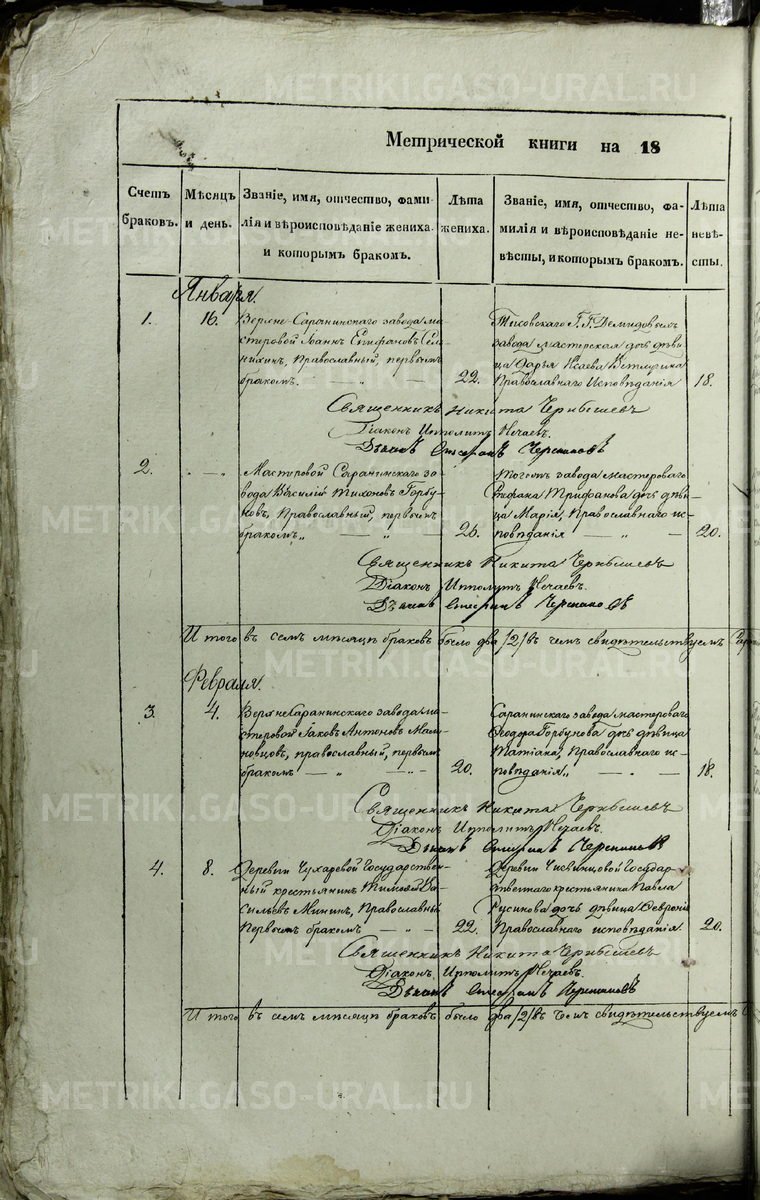 METRIKI.GASO-URAL.RU
Метрической книги на 18
Счетъ браковъ.
Мѣсяцъ и день.
Званіе, имя, отчество, фами-
лія и вѣроисповѣданіе жениха.
и которымъ бракомъ.
Лѣта жениха.
Званіе, имя, отчество, фа-
милія и вѣроисповѣданіе не-
вѣсты, и которымъ бракомъ.
Лѣта невѣ-
сты.
Января.
1.
16.
Верхне-Саранинскаго завода ма-
стеровой Іоаннъ Епифановъ
Православный, первымъ
бракомъ.
22.
Тисовскаго Г.Г. Демидовыхъ
завода мастерская дочь дѣви-
ца Дарья Исаева
Православнаго Исповѣданія
18.
Священникъ Никита Чернышевъ
Діаконъ Ипполитъ Нечаевъ.
2.
Мастеровой Саранинскаго за-
вода Василій Тихоновъ Горбу-
новъ, Православный, первымъ
бракомъ„
26.
тогожъ завода мастероваго
Стефана Трифанова дочь дѣви-
ца Марія, Православнаго ис-
повѣданія
20.
Священникъ Никита Чернышевъ
Діаконъ Ипполитъ Нечаевъ.
И того въ семъ мѣсяцѣ браковъ было два /2/ въ чемъ свидѣтельствуемъ
Февраля.
3.
4.
Верхнесаранинскаго завода ма-
стеровой Іаковъ Антоновъ
православный, первымъ
бракомъ
20.
Саранинскаго завода мастероваго
Ѳеодора Горбунова дочь дѣвица
Татіана, Православнаго ис-
повѣданія„
18.
Священникъ Никита Чернышевъ
Діаконъ Ипполитъ Нечаевъ.
4.
8.
Деревни Чухаревой Государствен-
ный крестьянинъ Тимофей Ва-
сильевъ Мининъ, Православный
Первымъ бракомъ
22.
Деревни Государ-
ственнаго крестьянина Павла
Русинова дочь дѣвица Феврония
Православнаго исповѣданія.
20.
Священникъ Никита Чернышевъ
Діаконъ Ипполитъ Нечаевъ.
И того въ семъ мѣсяцѣ браковъ было два /2/ въ чемъ свидѣтельствуемъ